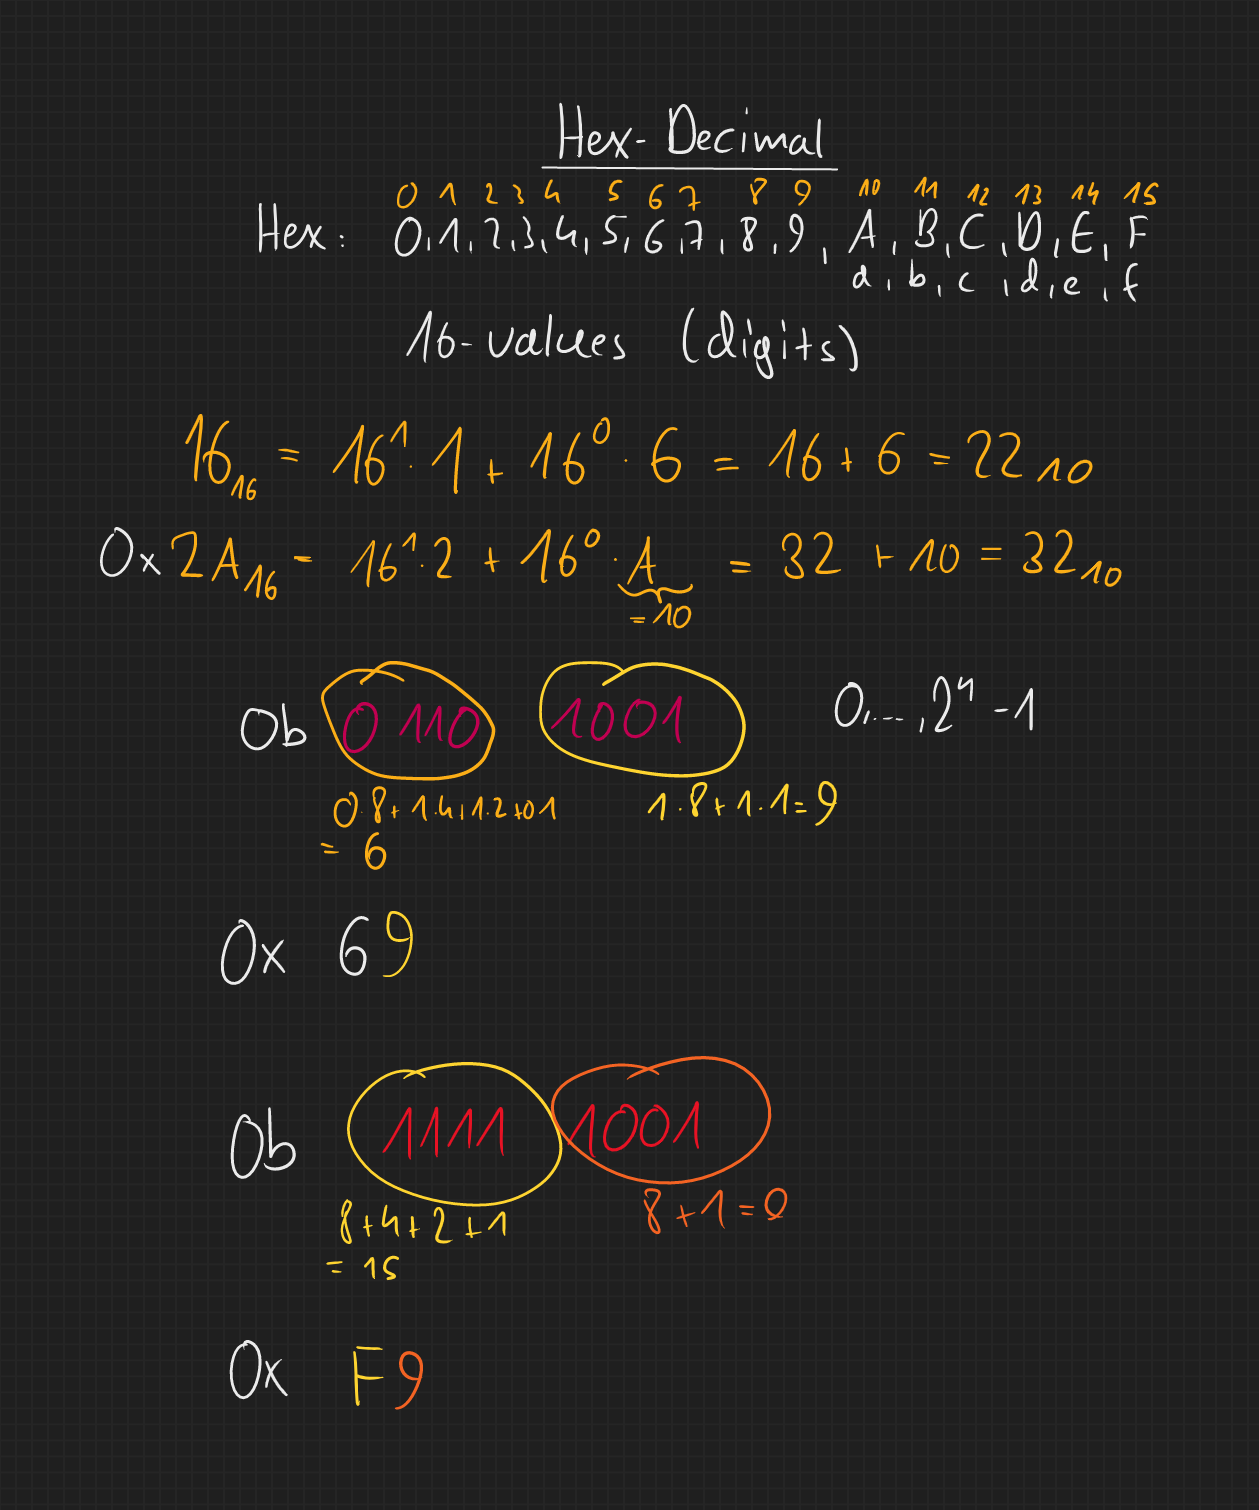 Hex-Decimal
0 1 2 3 4 5 6 7 8 9 10 11 12 13 14 15
Hex: 0,1,2,3,4,5,6,7,8,9,A,B,C,D,E,F
a,b,c,d,e,f
16-values (digits)
16₁₆ = 16¹·1 + 16⁰·6 = 16+6 = 22₁₀
0x2A₁₆ = 16¹·2 + 16⁰·A = 32 + 10 = 32₁₀
=10
0b 0110 1001 0,...,2⁴-1
0·8+1·4+1·2+01 1·8+1·1=9
= 6
0x 69
0b 1111 1001
8+4+2+1 8+1=9
= 15
0x F9